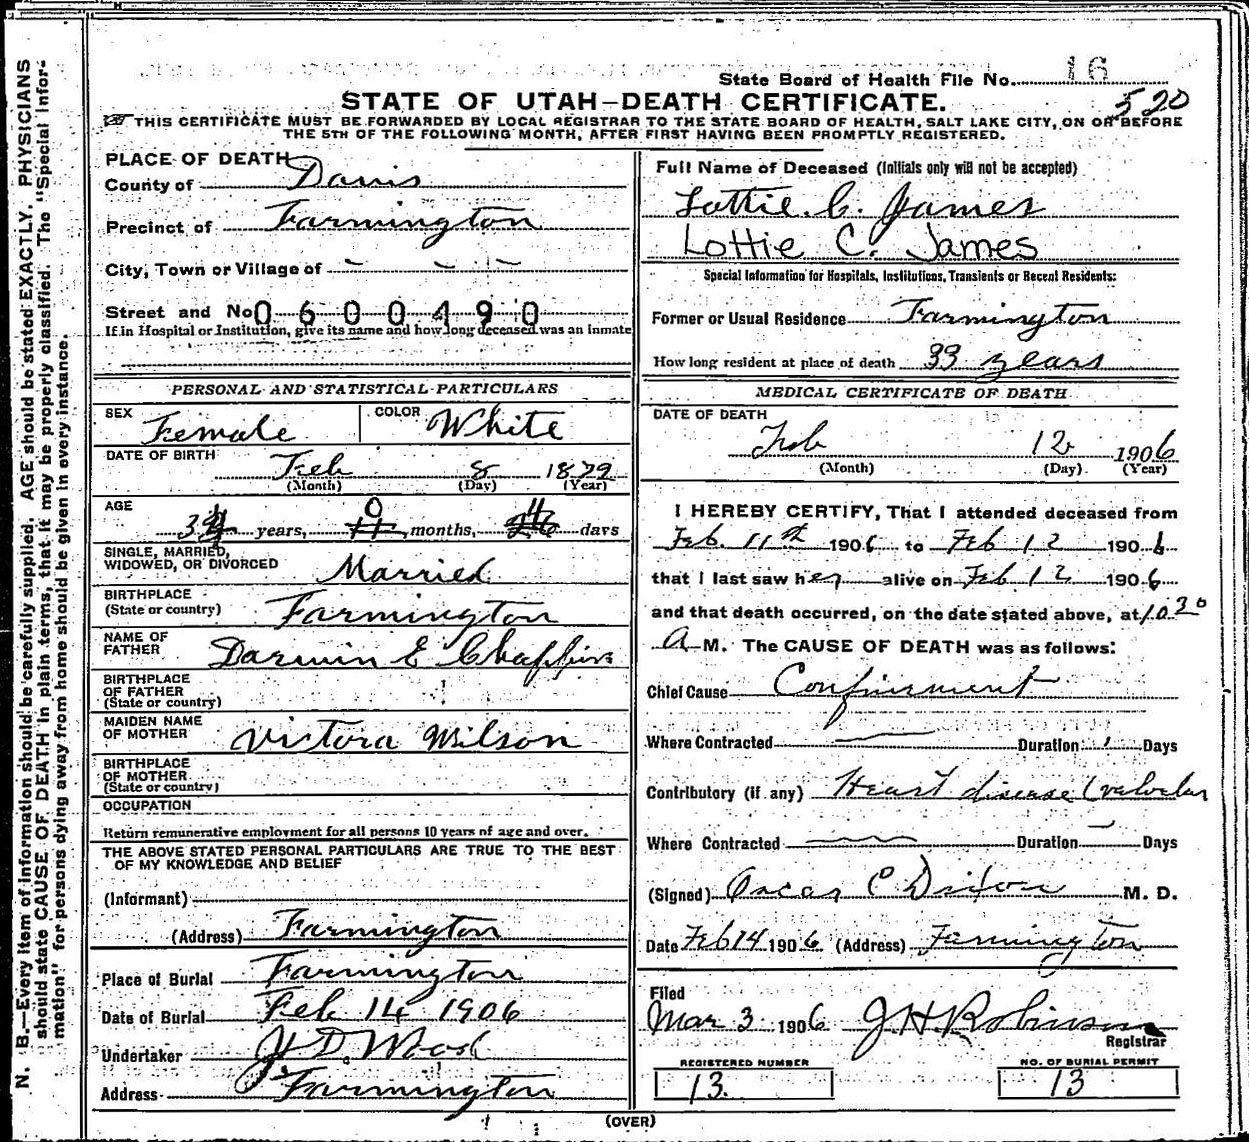 N. B.—Every item of information should be carefully supplied. AGE should be stated EXACTLY. PHYSICIANS
should state CAUSE OF DEATH in plain terms, that it may be properly classified. The "Special Infor-
mation" for persons dying away from home should be given in every instance.
State Board of Health File No. 16
520
STATE OF UTAH—DEATH CERTIFICATE.
THIS CERTIFICATE MUST BE FORWARDED BY LOCAL REGISTRAR TO THE STATE BOARD OF HEALTH, SALT LAKE CITY, ON OR BEFORE
THE 5TH OF THE FOLLOWING MONTH, AFTER FIRST HAVING BEEN PROMPTLY REGISTERED.
PLACE OF DEATH
County of Davis
Precinct of Farmington
City, Town or Village of – – –
Street and No 0600490
If in Hospital or Institution, give its name and how long deceased was an inmate
PERSONAL AND STATISTICAL PARTICULARS
SEX Female COLOR White
DATE OF BIRTH
Feb 8 1879
(Month) (Day) (Year)
AGE
years, months, days
SINGLE, MARRIED,
WIDOWED, OR DIVORCED Married
BIRTHPLACE
(State or country) Farmington
NAME OF
FATHER Darwin E
BIRTHPLACE
OF FATHER
(State or country)
MAIDEN NAME
OF MOTHER Victora Wilson
BIRTHPLACE
OF MOTHER
(State or country)
OCCUPATION
Return remunerative employment for all persons 10 years of age and over.
THE ABOVE STATED PERSONAL PARTICULARS ARE TRUE TO THE BEST
OF MY KNOWLEDGE AND BELIEF
(Informant)
(Address) Farmington
Place of Burial Farmington
Date of Burial Feb 14 1906
Undertaker J. D. Wood
Address Farmington
Full Name of Deceased (Initials only will not be accepted)
Lottie C. James
Lottie C. James
Special Information for Hospitals, Institutions, Transients or Recent Residents:
Former or Usual Residence Farmington
How long resident at place of death 33 years
MEDICAL CERTIFICATE OF DEATH
DATE OF DEATH
Feb 12 1906
(Month) (Day) (Year)
I HEREBY CERTIFY, That I attended deceased from
Feb. 11th 1906 to Feb 12 1906
that I last saw her alive on Feb 12 1906
and that death occurred, on the date stated above, at 10.30
A M. The CAUSE OF DEATH was as follows:
Chief Cause Confinement
Where Contracted Duration Days
Contributory (if any) Heart disease (valvular
Where Contracted Duration – Days
(Signed) Oscar C Dixon M. D.
Date Feb 14 1906 (Address) Farmington
Filed
Mar 3 1906 J. H. Robinson
Registrar
REGISTERED NUMBER NO. OF BURIAL PERMIT
13. 13
(OVER)